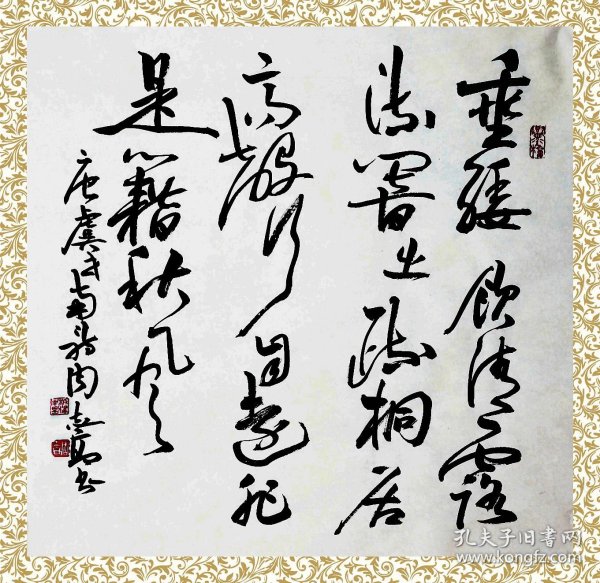 垂緌飲清露
流響出疏桐居
高聲自遠非
是藉秋風
唐虞世南詩周書
孔夫子旧书网
www.kongfz.com